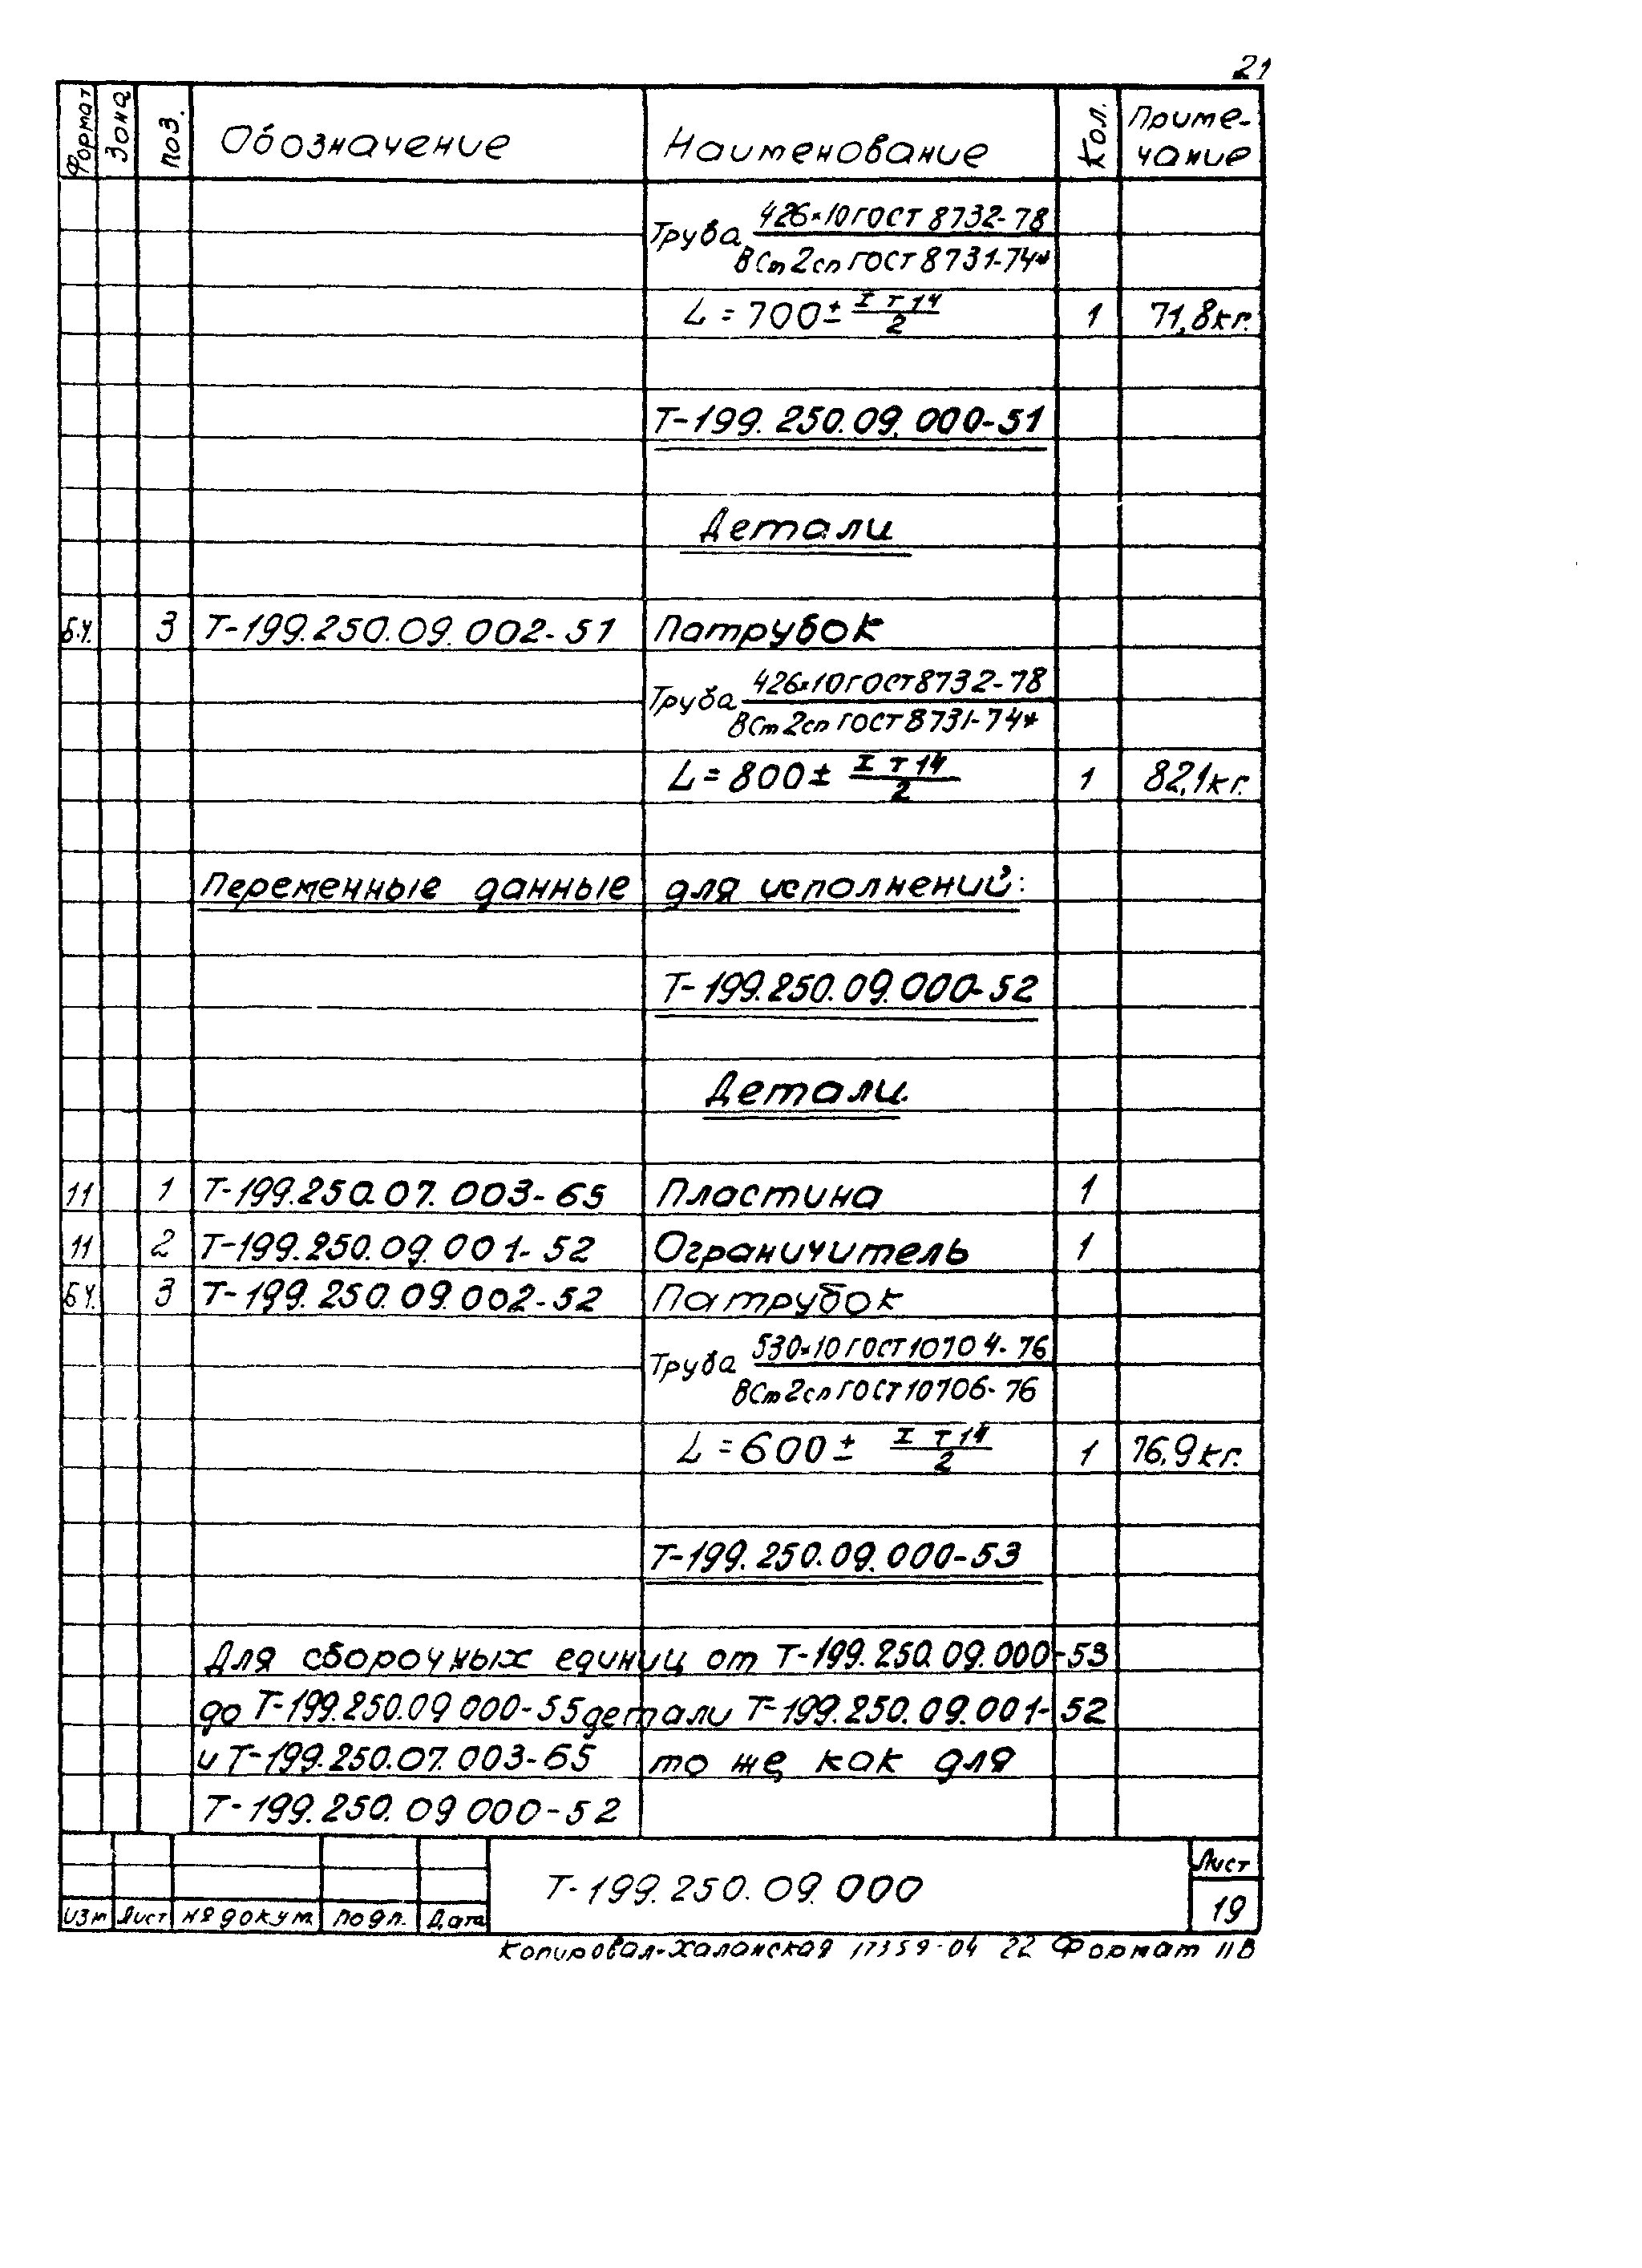 21
Формат Зона Поз. Обозначение Наименование Кол. Приме-
чание
Труба 426×10 ГОСТ 8732-78
ВСт2сп ГОСТ 8731-74*
L = 700 ± IT14/2 1 71,8кг.
Т-199.250.09.000-51
Детали
Б.Ч. 3 Т-199.250.09.002-51 Патрубок
Труба 426×10 ГОСТ 8732-78
ВСт2сп ГОСТ 8731-74*
L = 800 ± IT14/2 1 82,1кг.
Переменные данные для исполнений:
Т-199.250.09.000-52
Детали.
11 1 Т-199.250.07.003-65 Пластина 1
11 2 Т-199.250.09.001-52 Ограничитель 1
БЧ. 3 Т-199.250.09.002-52 Патрубок
Труба 530×10 ГОСТ 10704-76
ВСт2сп ГОСТ 10706-76
L = 600 ± IT14/2 1 76,9кг.
Т-199.250.09.000-53
Для сборочных единиц от Т-199.250.09.000-53
до Т-199.250.09 000-55 детали Т-199.250.09.001-52
и Т-199.250.07.003-65 то же как для
Т-199.250.09 000-52
Т-199.250.09.000
Лист
19
Изм Лист № докум. Подп. Дата
Копировал-Халанская 17359-04 22 Формат 11В